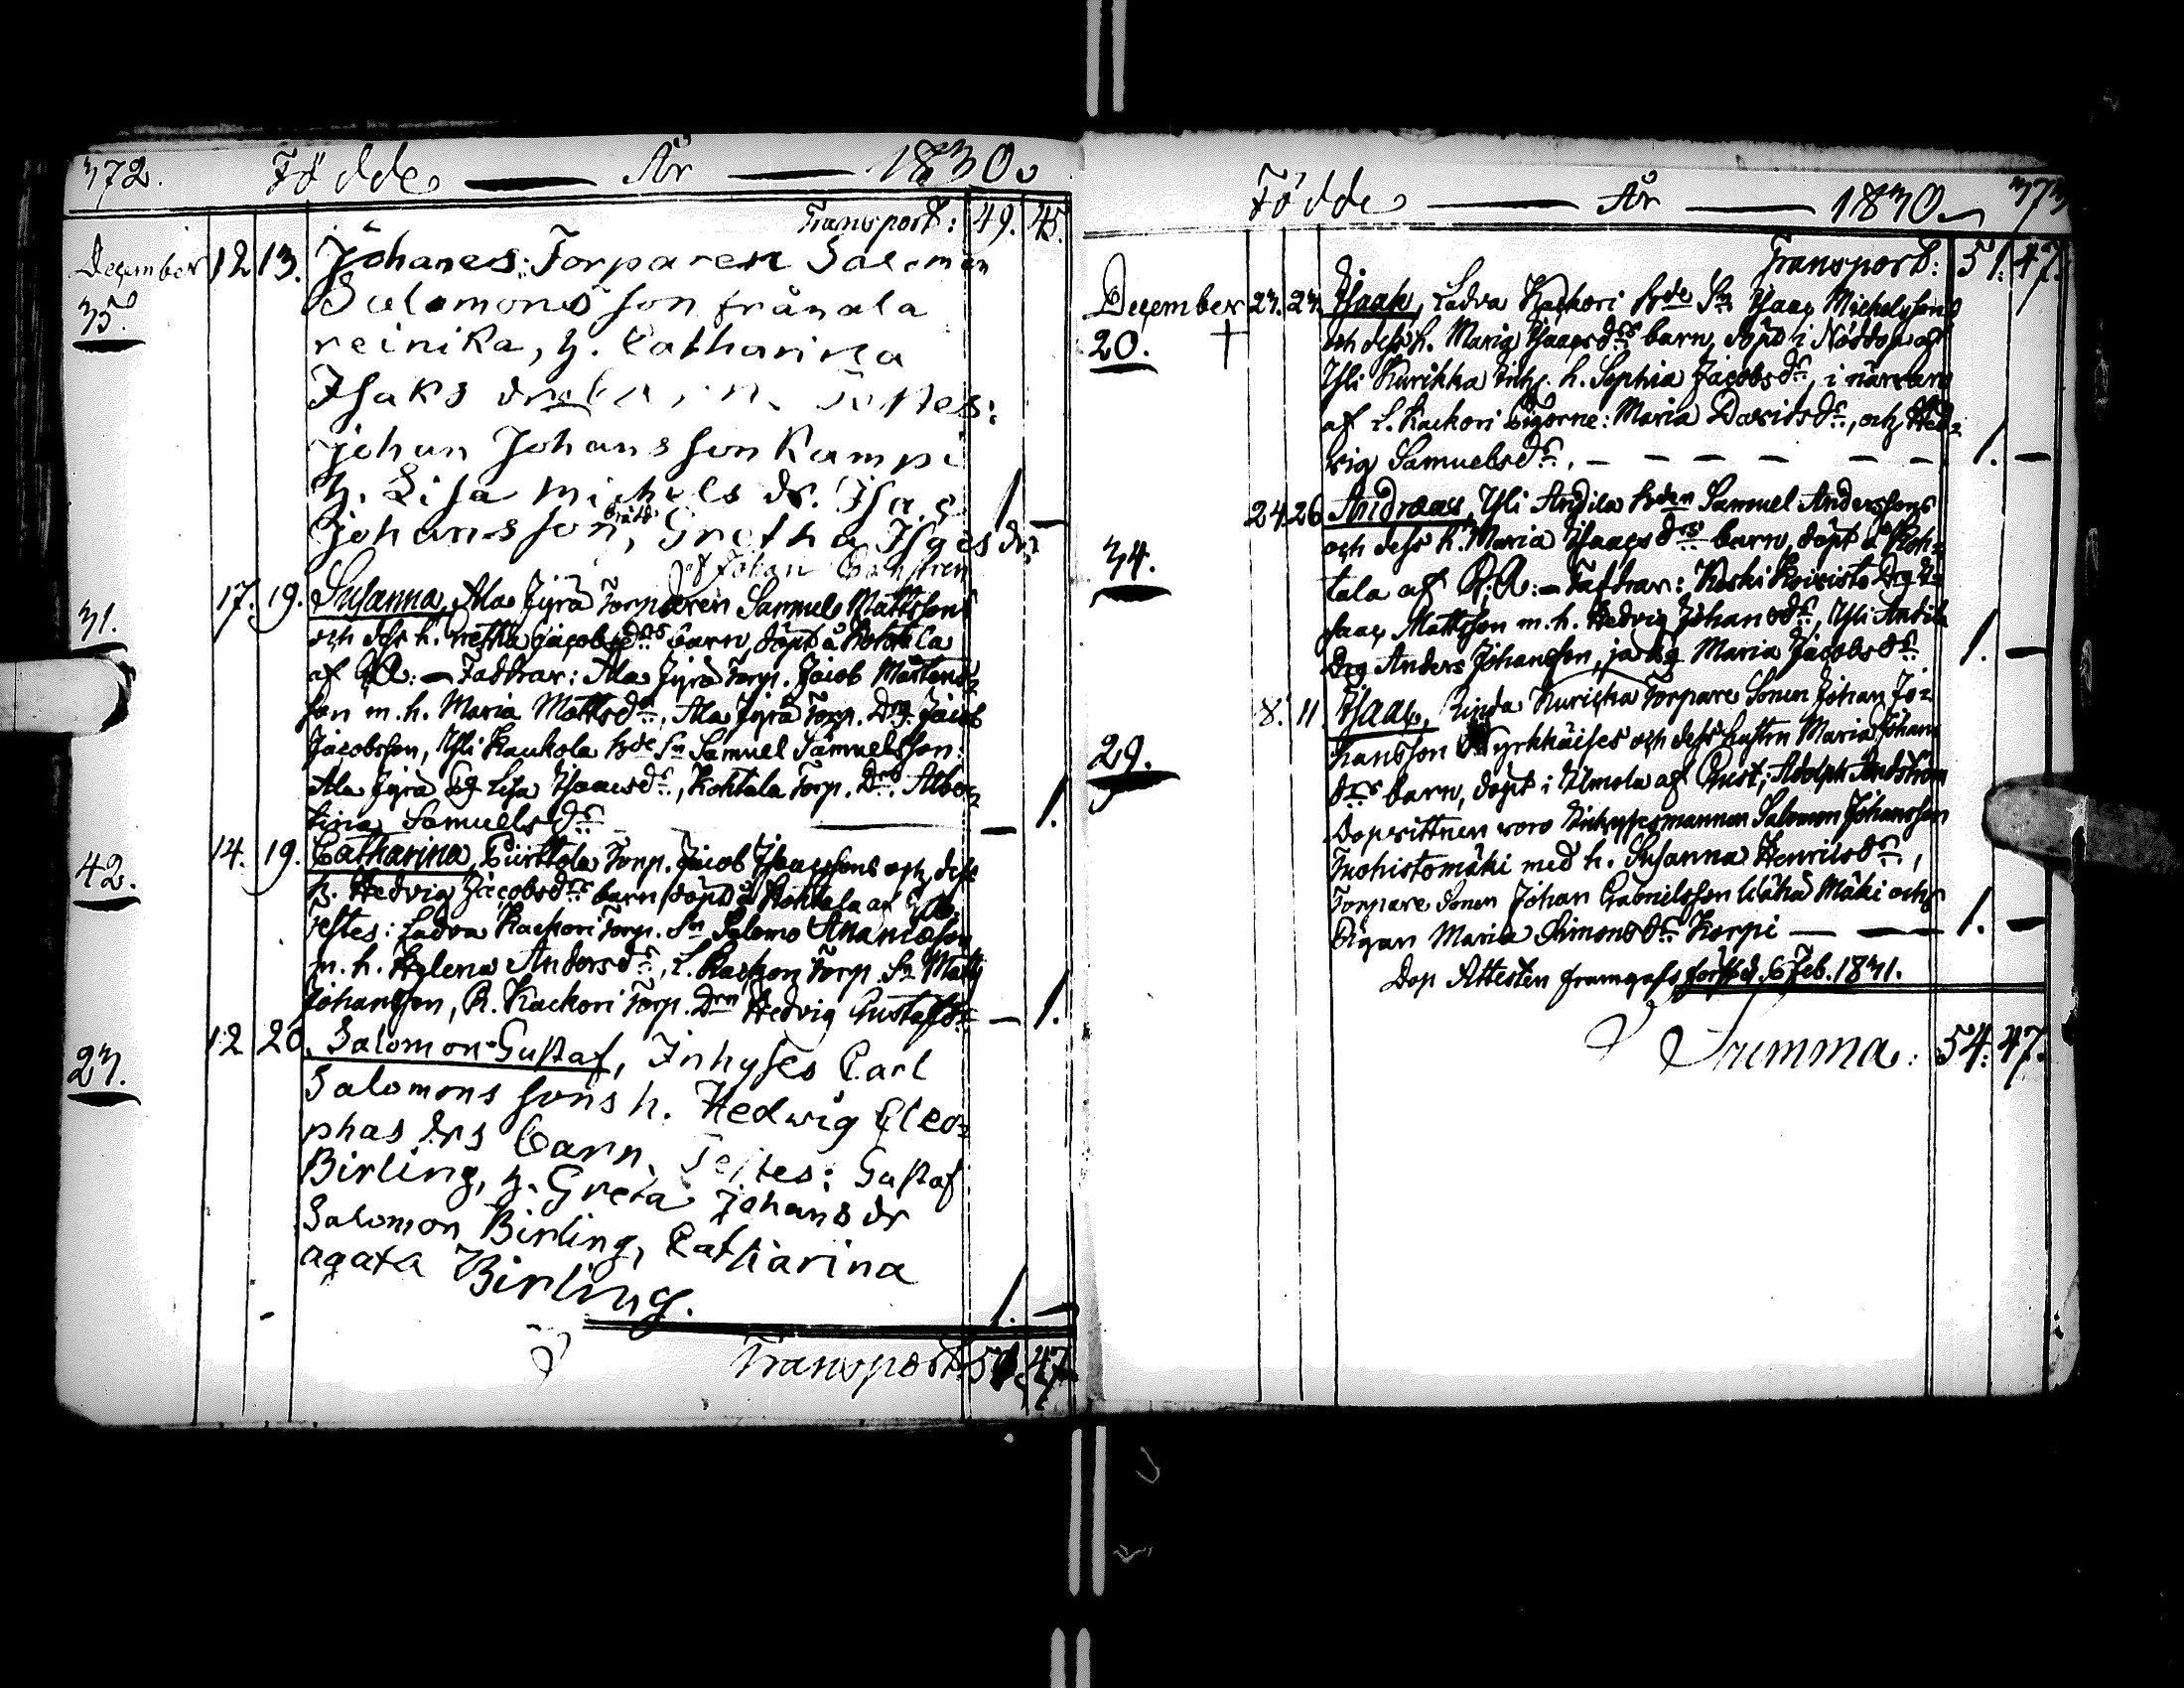 372. Födde — År — 1830.
Transport: 49. 45.
December 12 13. Johanes: Torparen Salomon
35. Salomons son från ala
reinika, h. Catharina
Isaks drs barn. Testes:
Johan Johansson Kampi
h. Lisa Michels dr. Isac
Johansson, Gretha Isacs dr. 1. —
af Johan
17. 19. Susanna, Ala Jyrä Torparen Samuel Mattssons
31. och dess h. Gretha Jacobsdrs barn, döpt å Kohtala
af — Faddrar: Ala Jyrä Torp. Jacob Mårtens-
son m. h. Maria Mattsdr, Ala Jyrä Torp. Drg. Jacob
Jacobsson, Yli Kaukola Bde Sn Samuel Samuelsson,
Ala Jyrä Pig. Lisa Isaacsdr, Kohtala Torp. Dr. Alber-
tina Samuelsdr — 1.
14. 19. Catharina, Torp. Jacob Isacssons och dess
42. h. Hedvig Jacobsdrs barn, döpt å Kohtala af
Testes: Ladva Kackori Torp. Sn Salomo Ananiasson
m. h. Helena Andersdr, L. Kackori Torp. Sn Matts
Johansson, R. Kackori Torp. Drn Hedvig Gustafsdr — 1.
12 20. Salomon Gustaf, Inhyses Carl
23. Salomons sons h. Hedwig Cleo-
phas drs barn, Testes: Gustaf
Birling, h. Greta Johans dr
Salomon Birling, Catharina
agata Birling. 1. —
Transport: 51. 47.
Födde — År — 1830. 373
Transport: 51. 47.
December 23. 23. Isaak, Ladva Kackori Bde Sn Isaac Michelssons
20. † och dess h. Maria Isaacsdrs barn, döpt i Nöddop af
Yli Kurikka Inh. h. Sophia Jacobsdr, i närvaro
af L. Kackori Pigorne: Maria Davidsdr, och Hed-
vig Samuelsdr. — 1. —
24 26 Andreas, Yli Andila Bden Samuel Anderssons
34. och dess h. Maria Isaacsdrs barn, döpt å Koh-
tala af — Faddrar: Koski Koivisto Drg I-
saac Mattsson m. h. Hedvig Johansdr, Yli Antila
Drg Anders Johansson, ja Pig. Maria Jacobsdr 1. —
8. 11. Isaac, Kurikka Torpare Sonen Johan Jo-
29. hansson Syrkkäises och dess hustru Maria Johans
drs barn, döpt i Ilmola af Adolph
Dopvittnen voro Inhysesmannen Salomon Johansson
Tuohistomäki med h. Susanna Henriksdr,
Torpare Sonen Johan Gabrielsson Wähä Mäki och
Pigan Maria Simonsdr Korpi — 1. —
Dop Attesten framgafs först d. 6 Feb. 1831.
Summa: 54. 47.